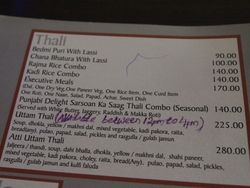 Thali
Bedmi Puri With Lassi 90.00
Chana Bhatura With Lassi 100.00
Rajma Rice Combo 140.00
Kadi Rice Combo 140.00
Executive Meals 170.00
(Dal, One Dry Veg, One Paneer Veg, One Rice Item, One Curd Item
One Roti, One Naan, Salad, Papad, Achar, Sweet Dish
Punjabi Delight Sarsoan Ka Saag Thali Combo (Seasonal) 140.00
(Served with White Butter, Jaggery, Radish & Makka Roti)
Uttam Thali (Available between 12pm to 4pm) 225.00
Soup, dhokla, yellow / makhni dal, mixed vegetable, kadi pakora, raita,
bread(any), pulao, papad, salad, pickles and rasgulla / gulab jamun
Atti Uttam Thali 280.00
Jaljeera / thandi, soup, dahi bhalla, dhokla, yellow / makhni dal, shahi paneer,
mixed vegetable, kadi pakora, choley, raita, bread(Any), papad, salad, pickles,
rasgulla / gulab jamun and kulfi faluda